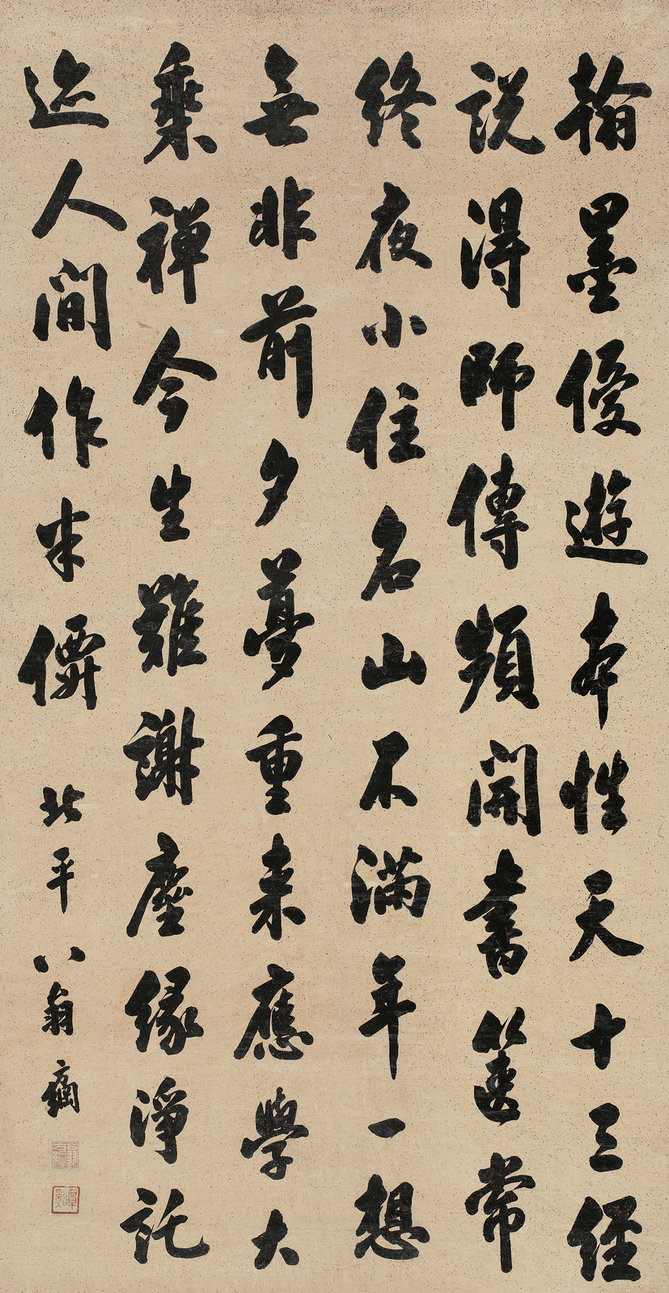 翰墨優遊本性天十三經
說得師傳頻開書篋常
終夜小住名山不滿年一想
無非前夕夢重来應學大
乘禪今生難謝塵緣淨託
迹人間作半僊
北平八翁